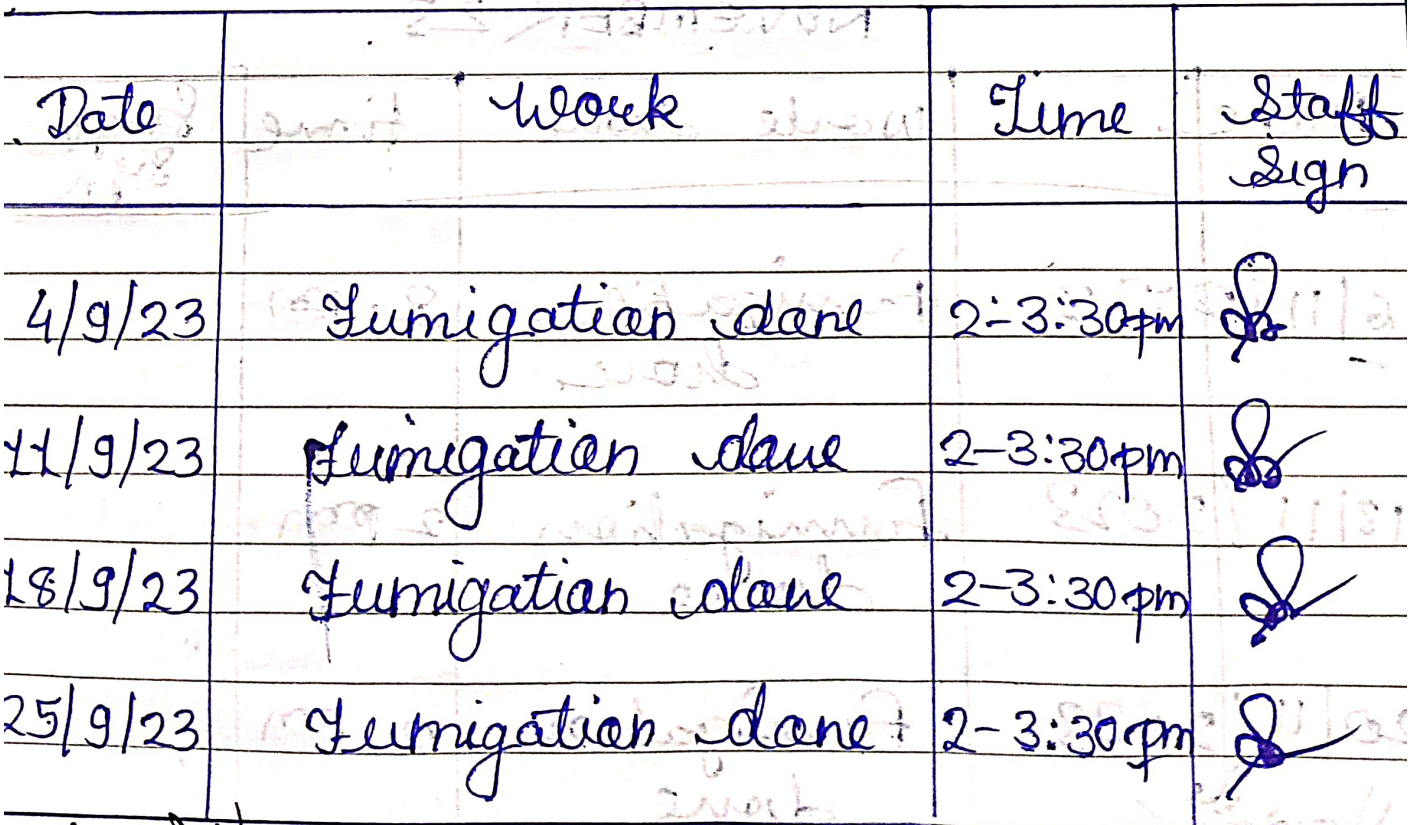 Date Work Time Staff
Sign
4/9/23 Fumigation done 2-3:30pm
11/9/23 Fumigation done 2-3:30pm
18/9/23 Fumigation done 2-3:30pm
25/9/23 Fumigation done 2-3:30pm